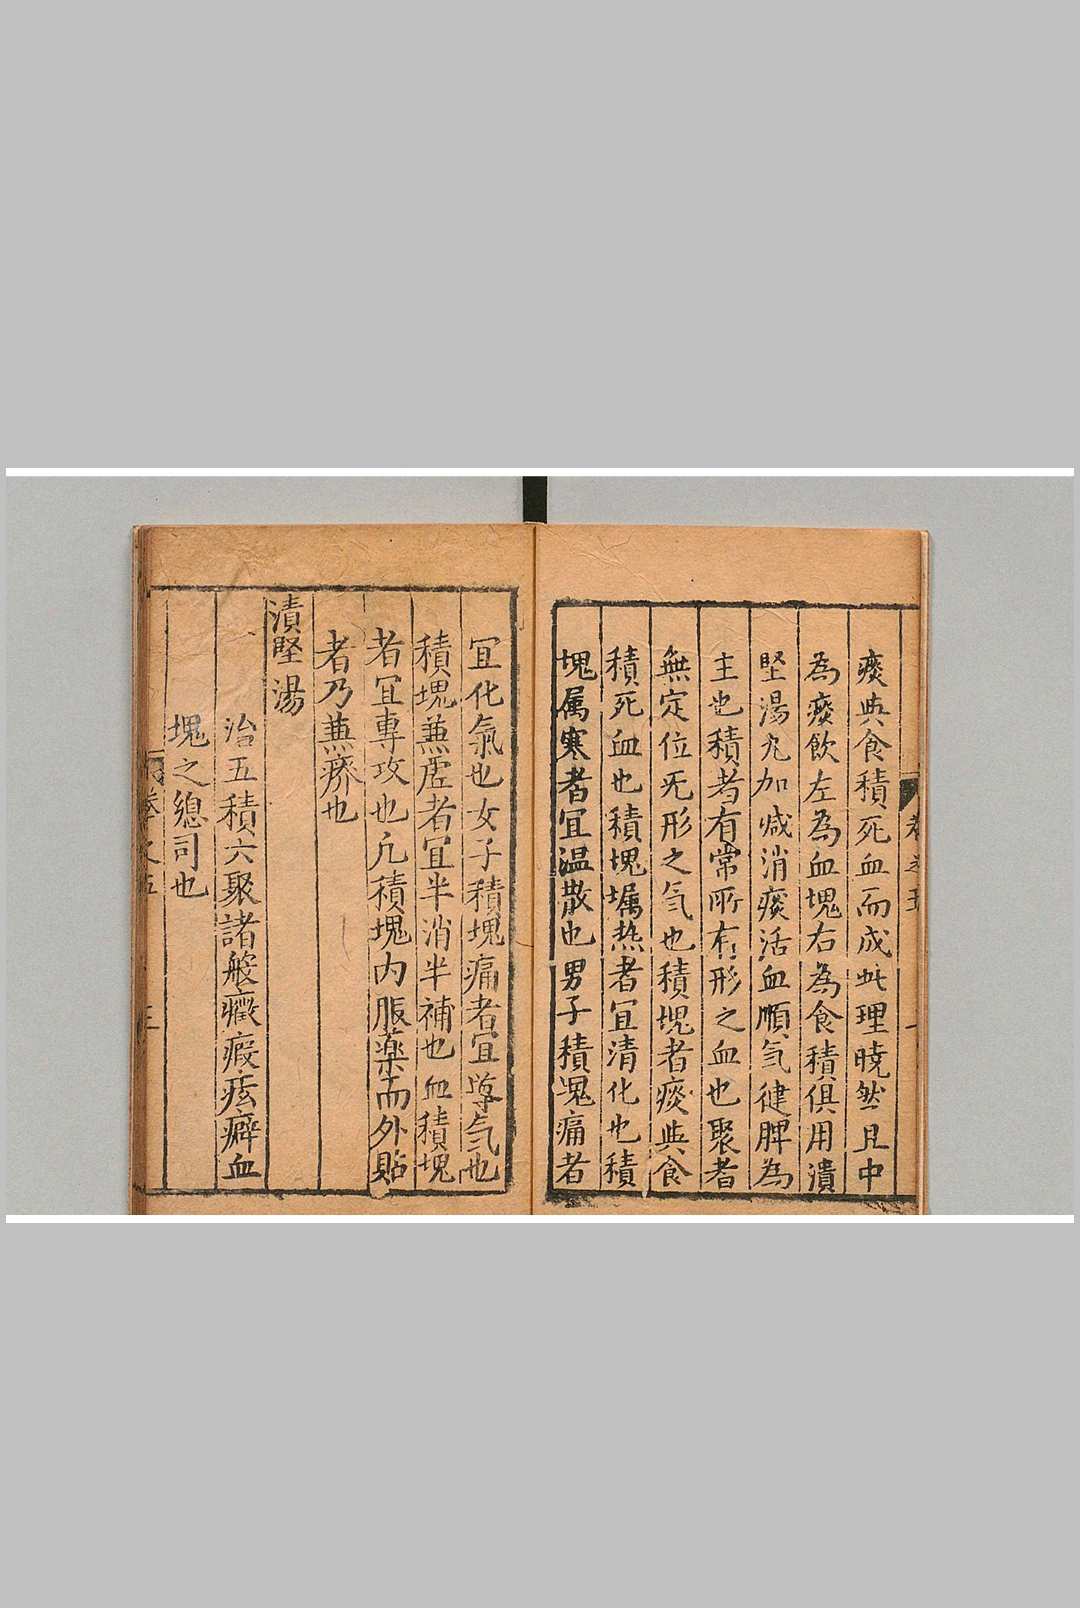 卷之五
痰與食積死血而成此理曉然且中
為痰飲左為血塊右為食積俱用潰
堅湯丸加减消痰活血順气健脾為
主也積者有常所有形之血也聚者
無定位无形之气也積塊者痰與食
積死血也積塊属热者宜清化也積
塊属寒者宜温散也男子積塊痛者
宜化氣也女子積塊痛者宜導气也
積塊兼虛者宜半消半補也血積塊
者宜專攻也凡積塊内服藥而外貼
者乃兼济也
潰堅湯
治五積六聚諸般癥瘕痃癖血
塊之總司也
卷之五
三